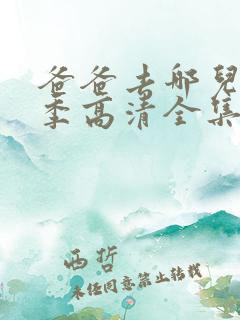 爸爸去哪兒
季高清全集
西哲
未经同意禁止转载